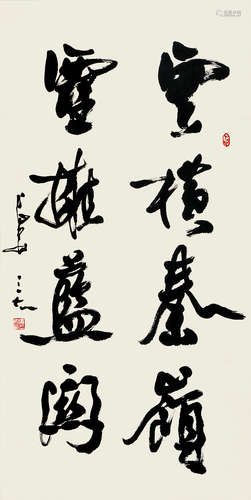 雲橫秦嶺
雪擁藍關